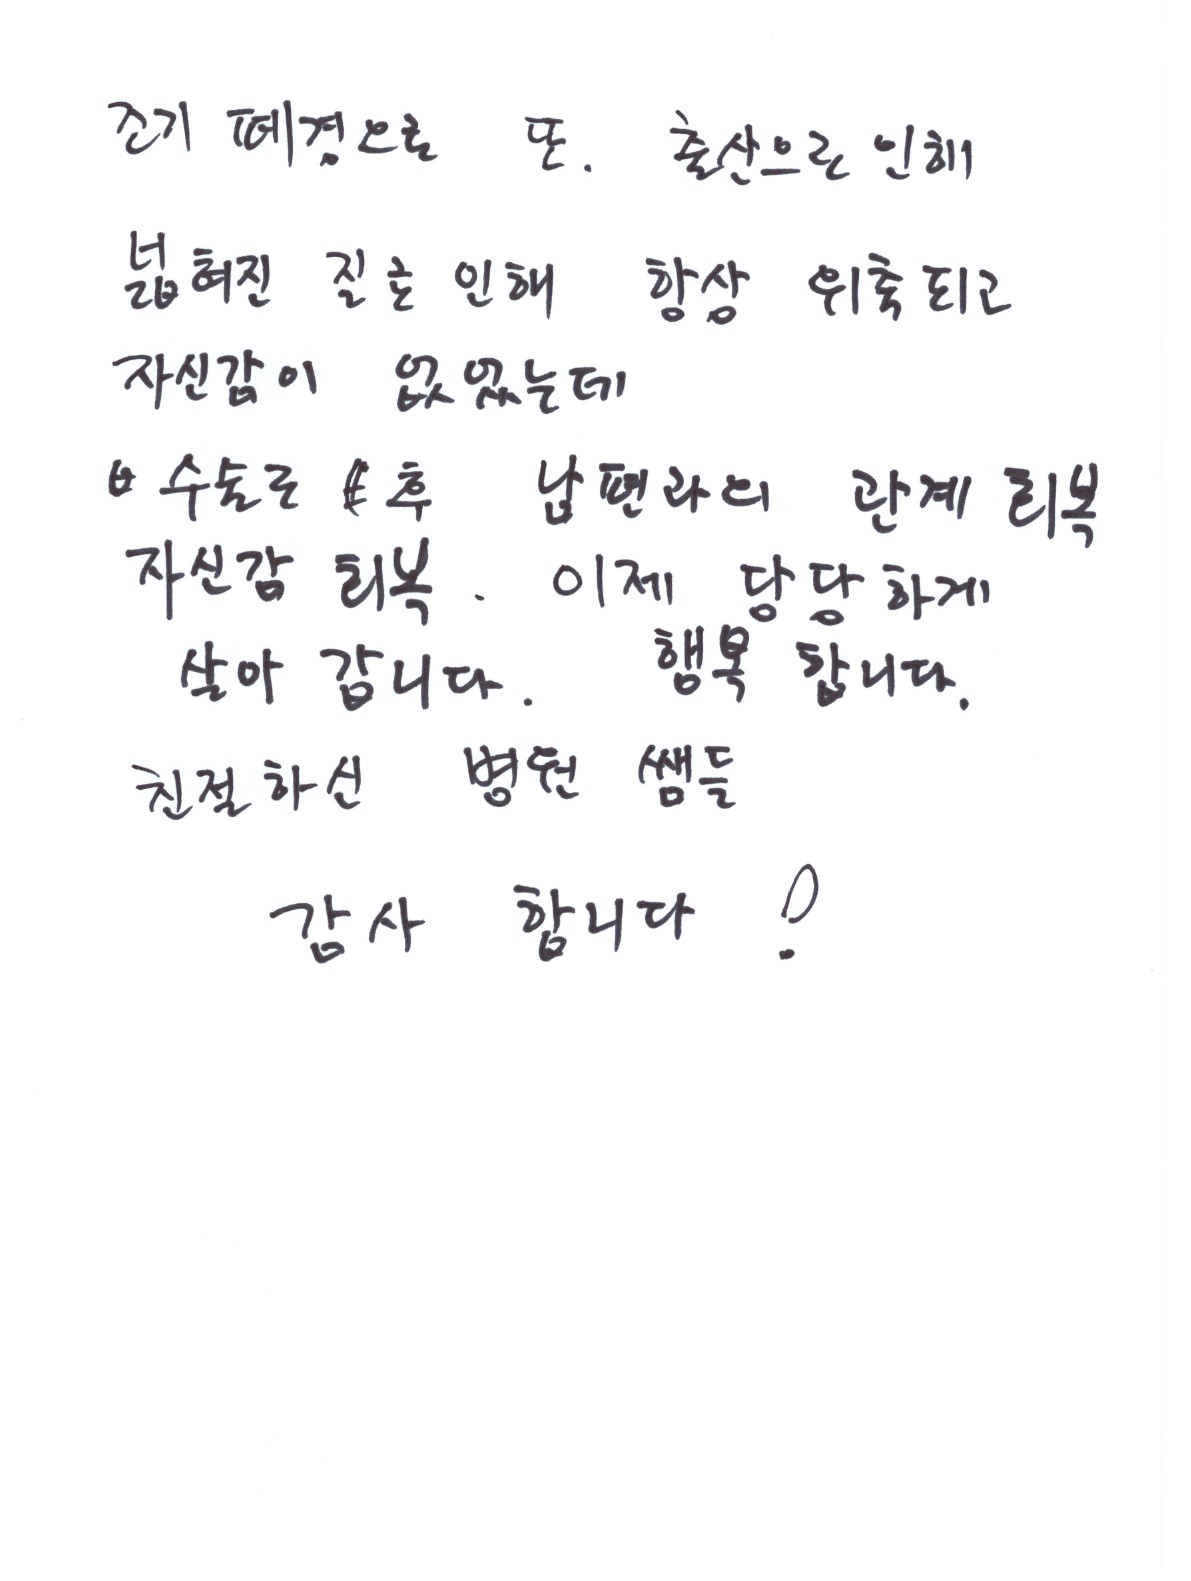 조기 폐경으로 또. 출산으로 인해
넓혀진 질로 인해 항상 위축되고
자신감이 없었는데
수술로 후 남편과의 관계 회복
자신감 회복. 이제 당당하게
살아 갑니다. 행복 합니다.
친절하신 병원 쌤들
감사 합니다!